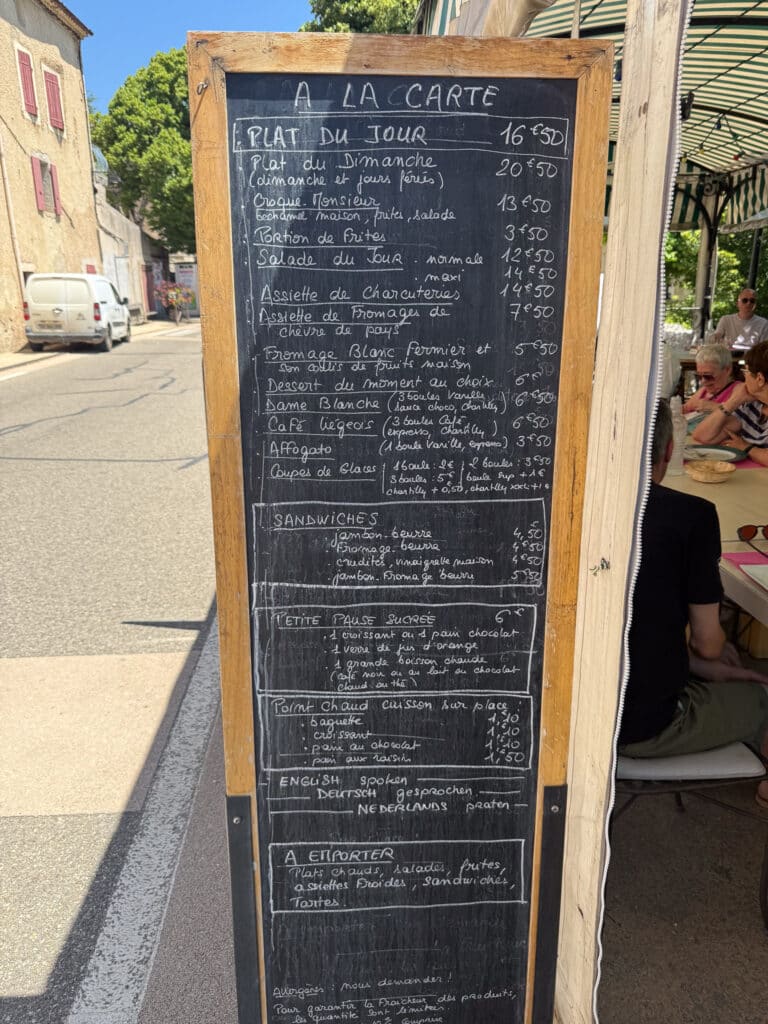 A LA CARTE
PLAT DU JOUR 16€50
Plat du Dimanche 20€50
(dimanche et jours fériés)
Croque-Monsieur 13€50
bechamel maison, frites, salade
Portion de Frites 3€50
Salade du Jour . normale 12€50
. maxi 14€50
Assiette de Charcuteries 14€50
Assiette de Fromages de 7€50
chèvre de pays
Fromage Blanc Fermier et 5€50
son coulis de fruits maison
Dessert du moment au choix 6€
Dame Blanche (3 boules Vanille, 6€50
sauce choco, chantilly)
Café Liégeois (3 boules Café, 6€50
expresso, chantilly)
Affogato (1 boule Vanille, expresso) 3€50
Coupes de Glaces 1 boule : 2€ 2 boules : 3€50
3 boules : 5€ boule sup + 1€
chantilly + 0,50, chantilly + 1€
SANDWICHES
. jambon-beurre 4,50
. Fromage-beurre 4€50
. crudités, vinaigrette maison 4€50
. jambon-Fromage beurre 5€50
PETITE PAUSE SUCRÉE 6€
. 1 croissant ou 1 pain chocolat
. 1 verre de jus d'orange
. 1 grande boisson chaude
(café noir ou au lait ou chocolat
chaud ou thé)
Point Chaud cuisson sur place :
. baguette 1,10
. croissant 1,10
. pain au chocolat 1,10
. pain aux raisin 1,50
ENGLISH spoken
DEUTSCH gesprochen
NEDERLANDS praten
A EMPORTER
Plats chauds, salades, frites,
assiettes Froides, sandwiches,
Tartes.
Allergènes : nous demander !
Pour garantir la Fraîcheur des produits,
les quantité sont limitées.